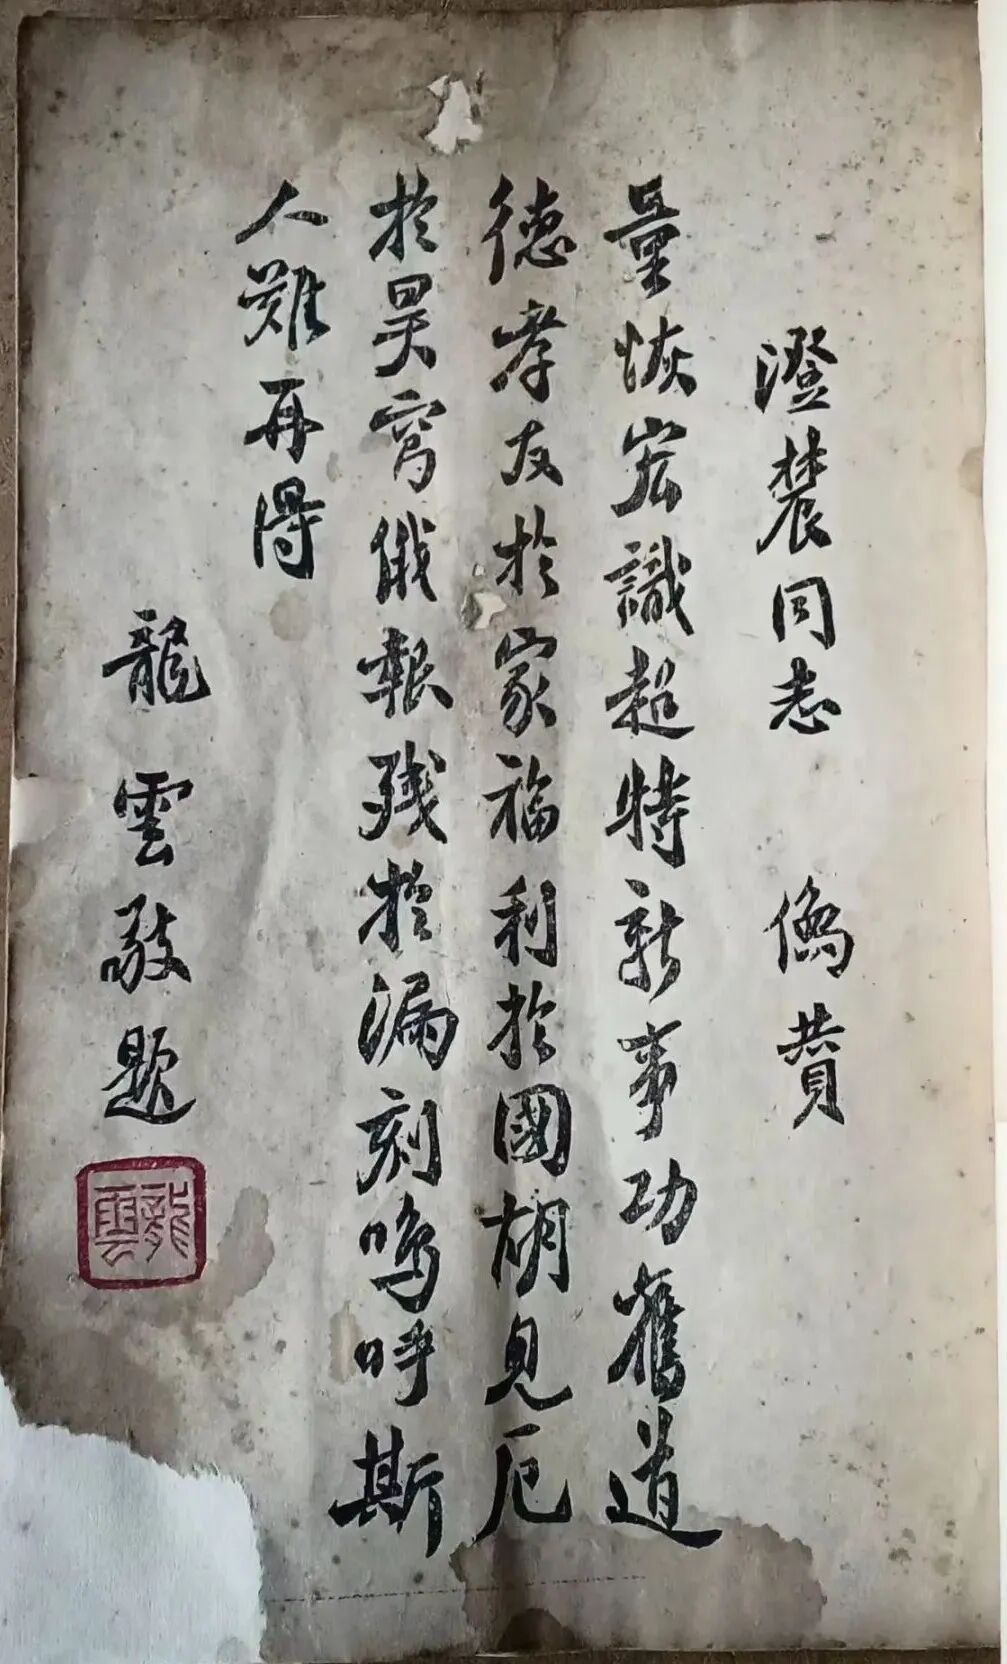 澄辳同志 像贊
量恢宏識超特新事功舊道
德孝友於家福利於國胡見厄
於昊穹俄報殘於漏刻嗚呼斯
人難再得
龍雲敬題
龍雲